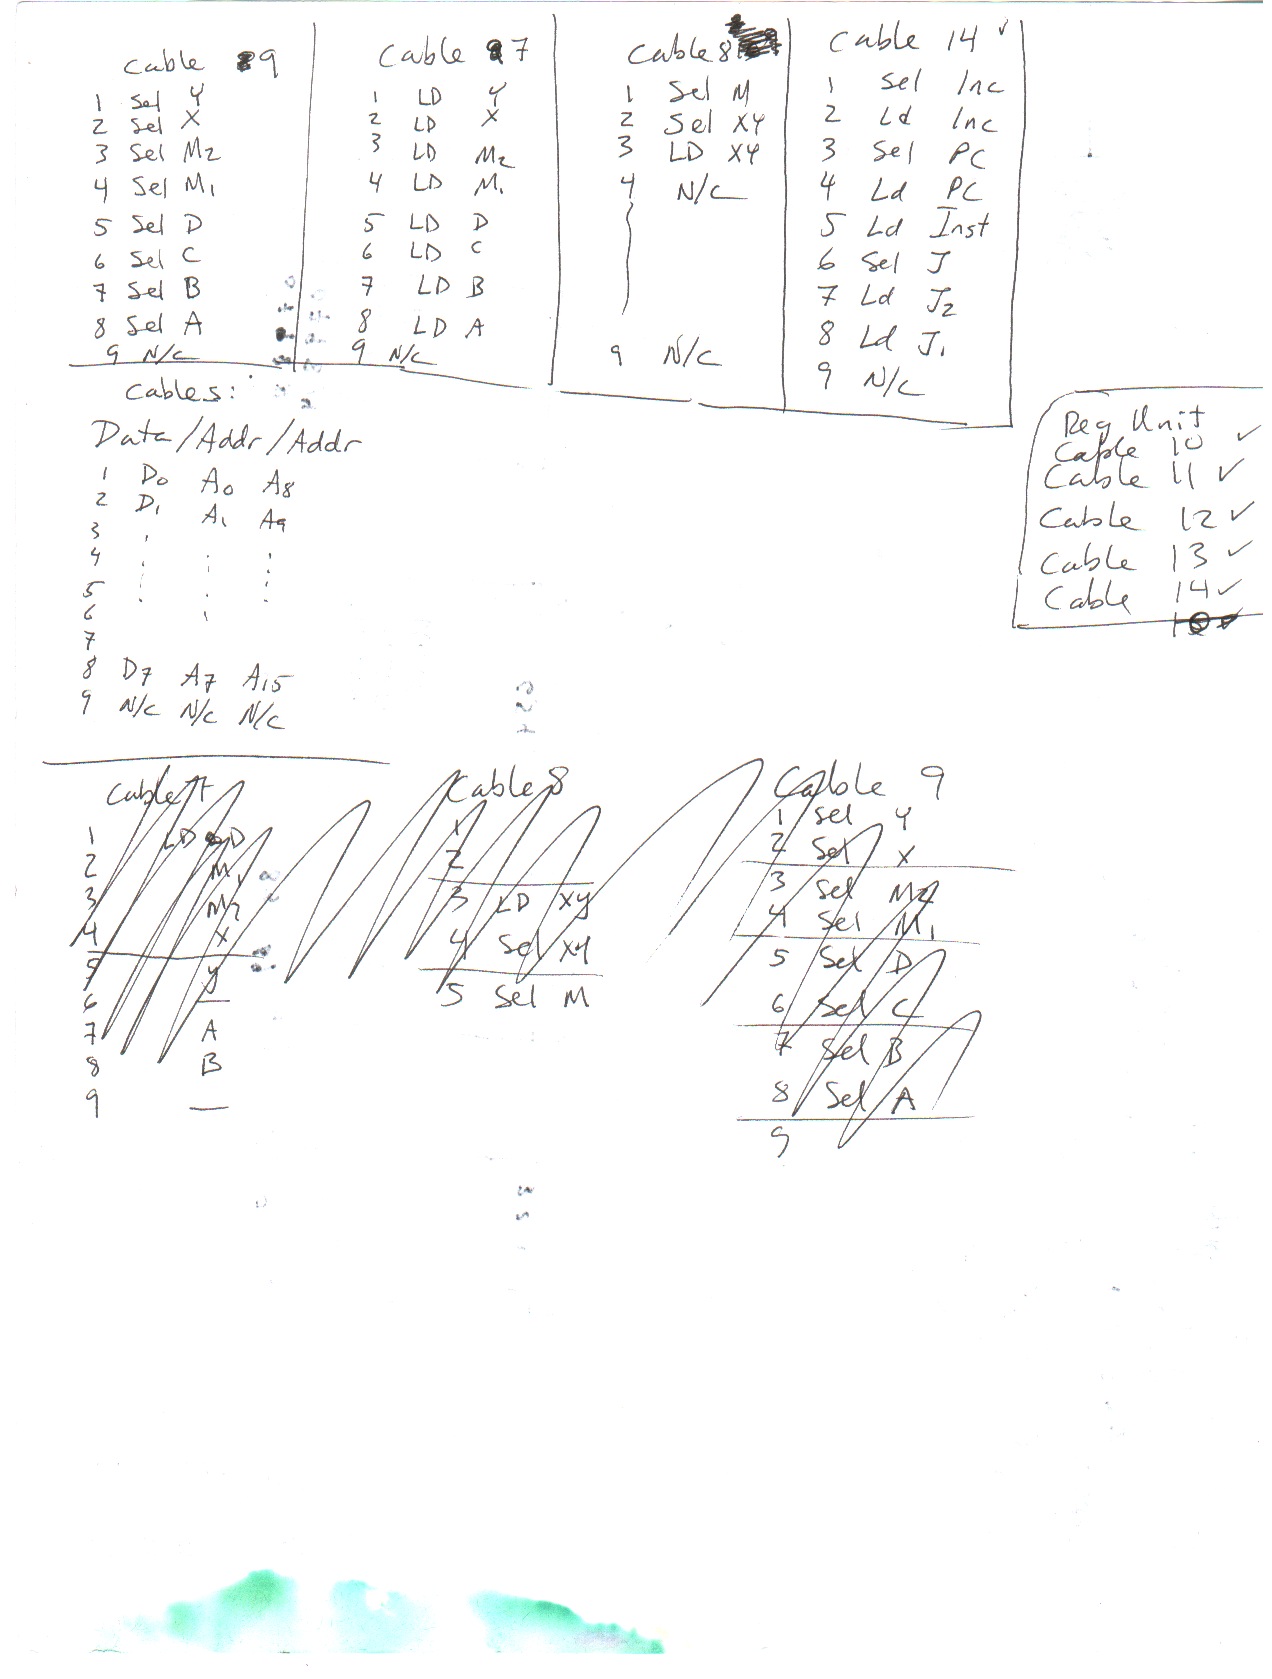 Cable 9
1 Sel Y
2 Sel X
3 Sel M2
4 Sel M1
5 Sel D
6 Sel C
7 Sel B
8 Sel A
9 N/C
Cable 7
1 LD Y
2 LD X
3 LD M2
4 LD M1
5 LD D
6 LD C
7 LD B
8 LD A
9 N/C
Cable 8
1 Sel M
2 Sel XY
3 LD XY
4 N/C
9 N/C
Cable 14 ✓
1 Sel Inc
2 Ld Inc
3 Sel PC
4 Ld PC
5 Ld Inst
6 Sel J
7 Ld J2
8 Ld J1
9 N/C
Cables:
Data/Addr/Addr
1 D0 A0 A8
2 D1 A1 A9
3
4
5
6
7
8 D7 A7 A15
9 N/C N/C N/C
Reg Unit
Cable 10 ✓
Cable 11 ✓
Cable 12 ✓
Cable 13 ✓
Cable 14 ✓
Cable 7
1 LD D
2 M1
3 M2
4 X
5 Y
6 —
7 A
8 B
9 —
Cable 8
1
2
3 LD XY
4 Sel XY
5 Sel M
Cable 9
1 Sel Y
2 Sel X
3 Sel M2
4 Sel M1
5 Sel D
6 Sel C
7 Sel B
8 Sel A
9